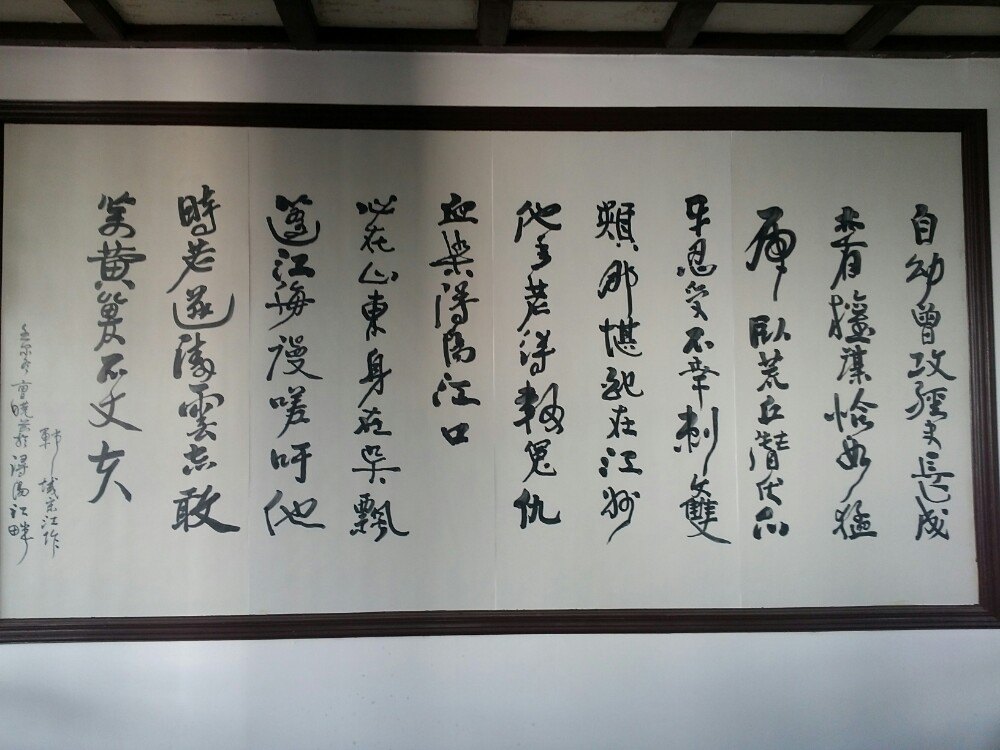 自幼曾攻經史長成
亦有權謀恰如猛
虎臥荒丘潛伏爪
牙忍受不幸刺文雙
頰那堪配在江州
他年若得報冤仇
血染潯陽江口
心在山東身在吳飄
蓬江海謾嗟吁他
時若遂凌雲志敢
笑黃巢不丈夫
鄆城宋江作
於潯陽江畔